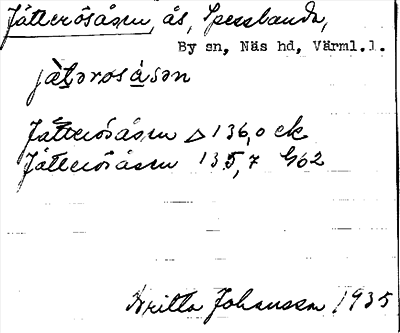 Jätterösåsen, ås, Spessbanda,
By sn, Näs hd, Värml.l.
jæ̀tərosåsən
Jätterösåsen △ 136,0 ek
Jätterösåsen 135,7 G62
Britta Johansson 1935